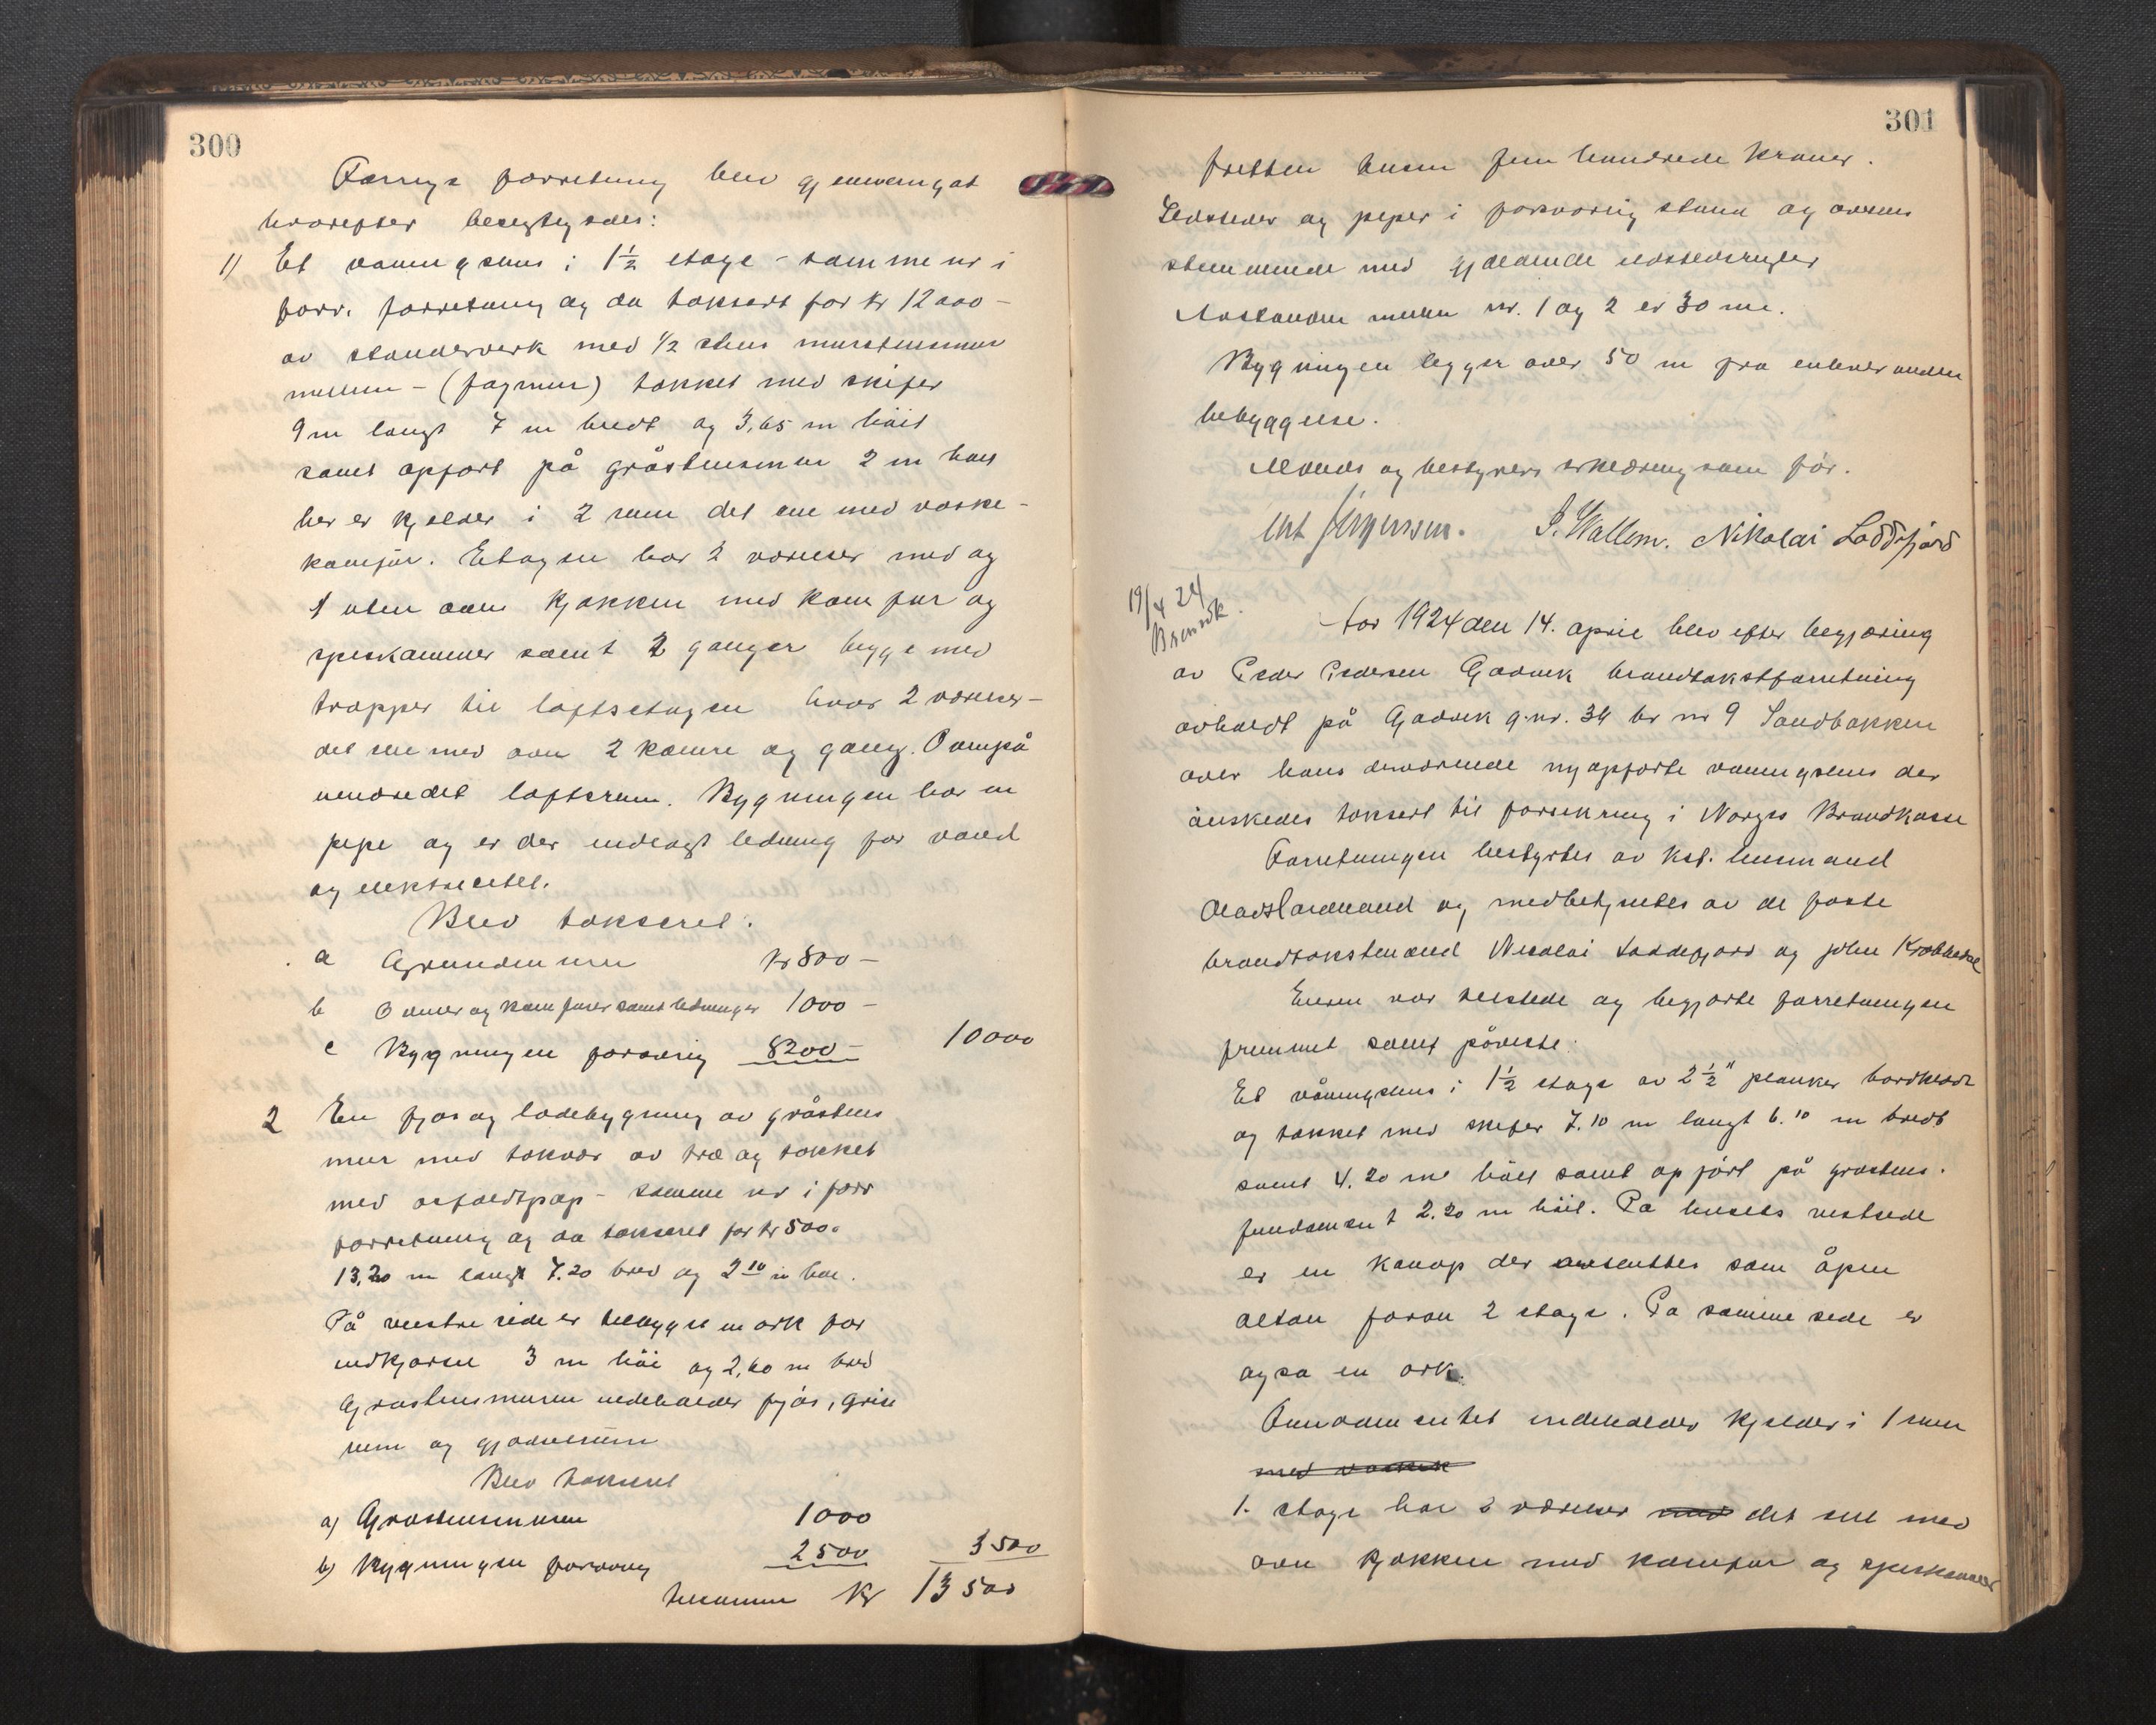 300
Forrige forretning blev gjennemgat
hvorefter besigtigedes:
1) Et vaaningshus i 1 1/2 etage - samme nr i
forr. forretning og da taksert for kr 12000 -
av standerverk med 1/2 stens murstensmur
mellem - (fagmur) takket med skifer
9 m langt 7 m bredt og 3,65 m höit
samt opført på gråstensmur 2 m høi
her er kjelder i 2 rum det ene med vaske-
komfür. Etagen har 2 værelser med og
1 uten ovn kjøkken med komfur og
speskammer samt 2 ganger begge med
trapper til loftsetagen hvor 2 værelser -
det ene med ovn 2 kamre og gang. Ovenpå
uinredet loftsrum. Bygningen har en
pipe og er der indlagt ledning for vand
og elektricitet.
Blev takseret:
a Grundmuren kr 800 -
b Ovner og komfurer samt ledninger 1000 -
c Bygningen forøvrig 8200 - 10000
2 En fjøs og ladebygning av gråstens
mur med takvær av træ og takket
med asfaldtpap - samme nr i forr
forretning og da takseret for kr 500.
13,20 m langt 7.20 bred og 2 10 m høi.
På vestre side er tilbygget en ark for
indkjørsel 3 m höi og 2,60 m bred
Gråstensmuren indeholder fjös, grise
rum og gjødselrüm
Blev takseret
a) Gråstensmuren 1000
b) Bygningen forøvrig 2500 3500
tilsammen Kr 13500
301
fretten tusen fem hundrede kroner.
Ildsteder og peper i forsvarlig stand og overens
stemmende med gjældende ildstedsregler
Avstanden mellem nr. 1 og 2 er 30 m.
Bygningen ligger over 50 m fra enhver anden
bebyggelse.
Mænds og bestyrers erklæring som før.
Ant Jörgensen. S. Wallem. Nikolai Loddefjord
19/4 24
Brensk.
Aar 1924 den 14. april blev efter begjæring
av Peder Pedersen Gaavik brandtakstforretning
avholdt på Gjøvik g.nr. 34 br nr 9 Sandbakken
over hans derværende nyopførte vaaningshus der
önskedes taksert til forsikring i Norges Brandkasse
Forretningen bestyrtes av kst. lensmand
og medbetjentes av de faste
brandtakstmænd Nicolai Loddefjord og John
Eieren var tilstede og begjærte forretningen
fremmet samt påviste:
Et våningshus i 1 1/2 etage av 2 1/2" planker bordklædt
og takket med skifer 7.10 m langt 6.10 m bredt
samt 4.20 m höit samt opfört på gråstens.
fundament 2.20 m höit. På husets vestside
er en kanap der avsluttes som åpen
altan foran 2 etage. På samme side er
ogsa en ark.
Fundamentet indeholder kjelder i 1 rum
med vaskek
1. etage har 2 værelser med det ene med
ovn kjøkken med komfur og speskammer